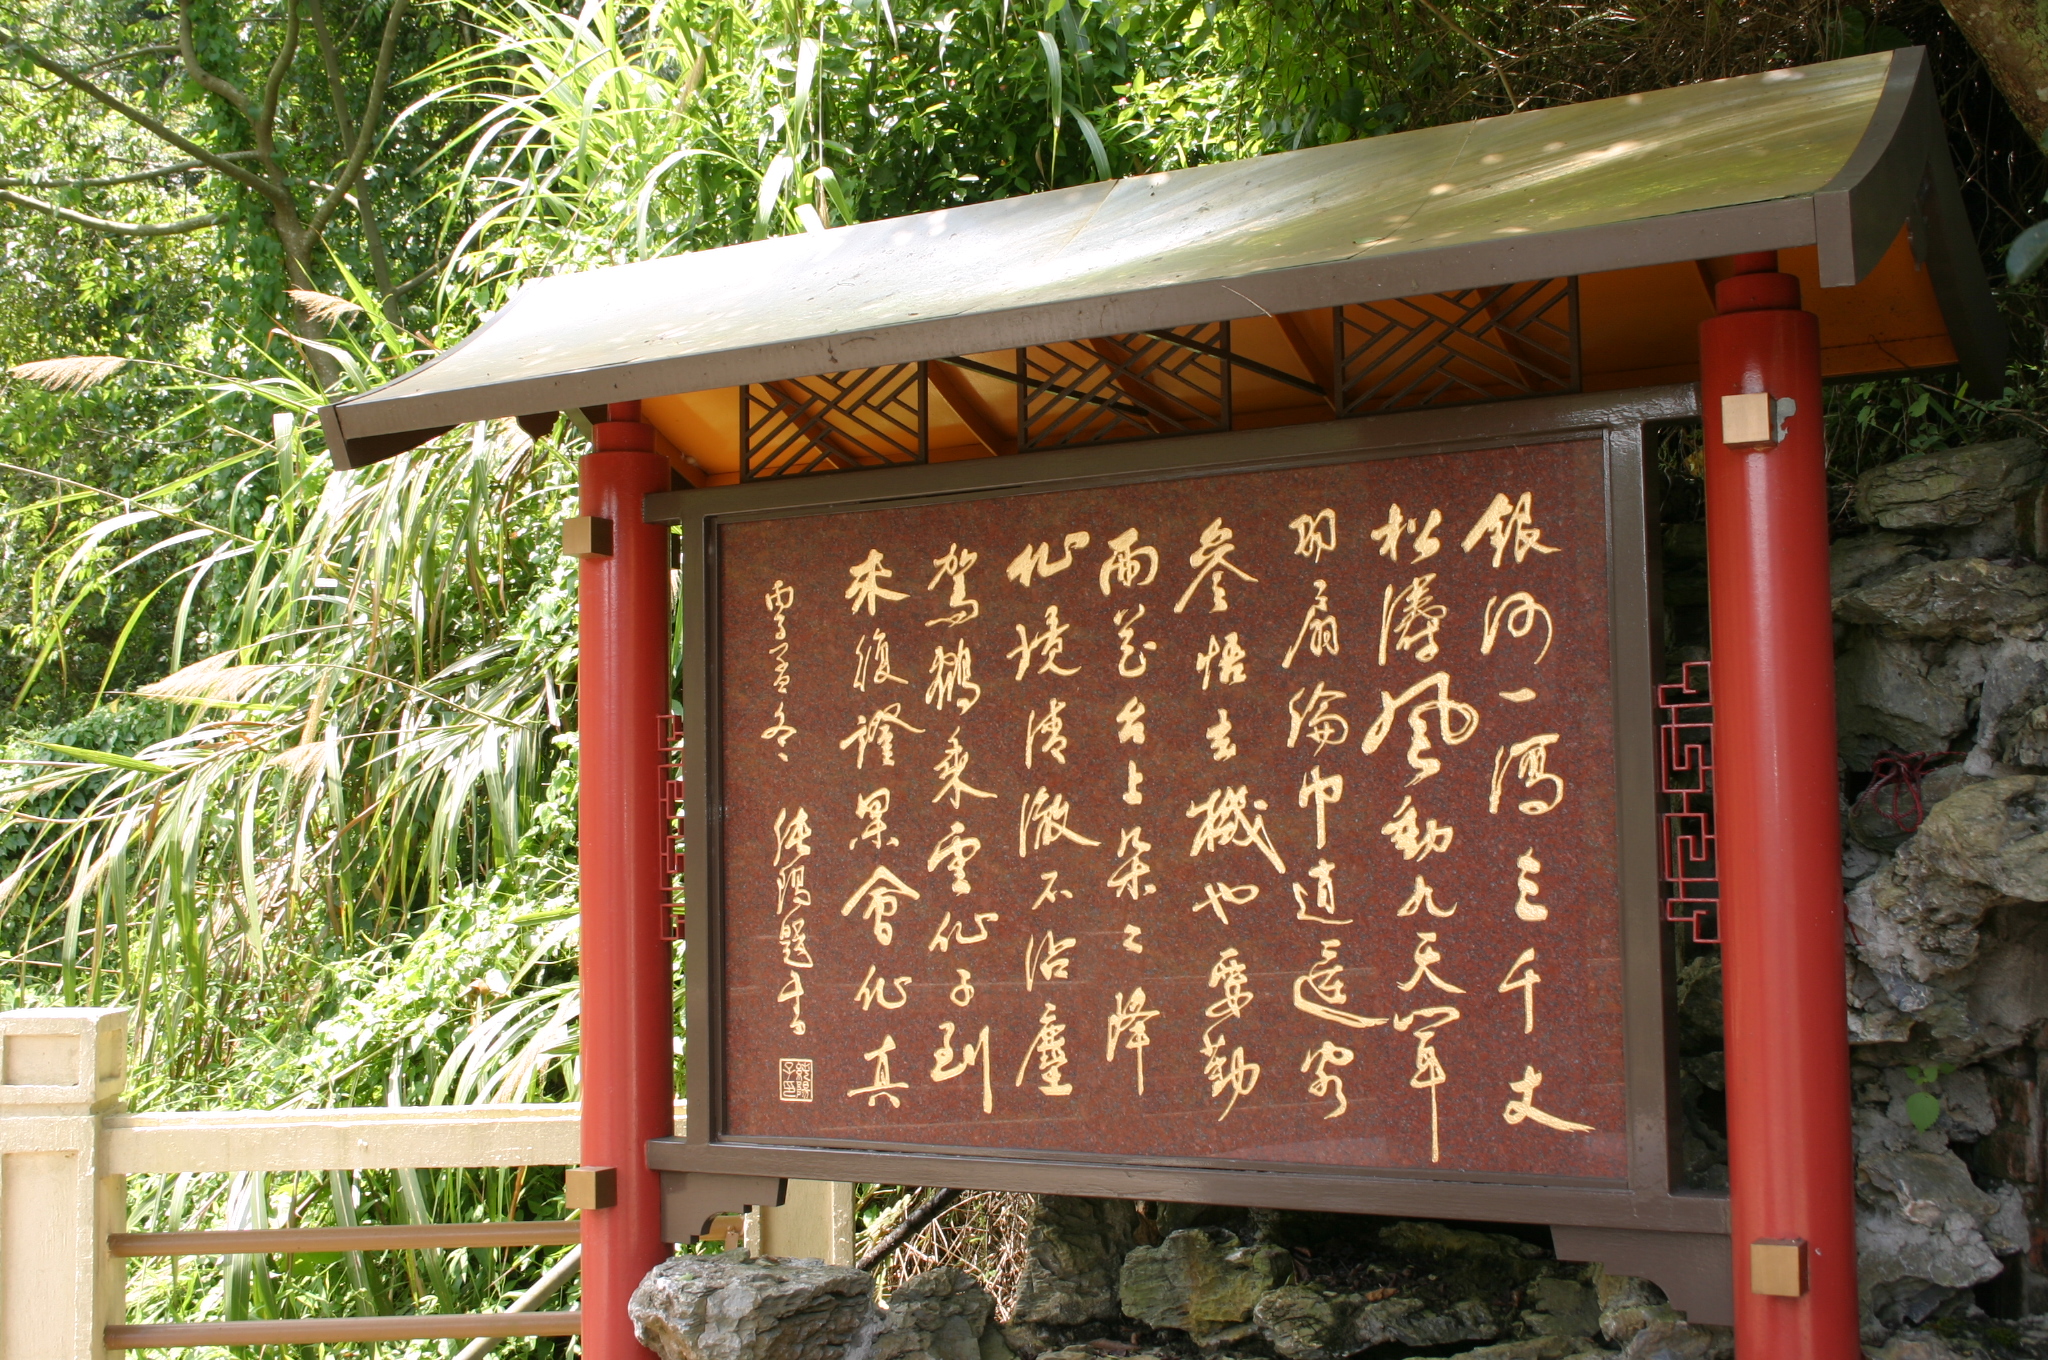 銀河一瀉三千丈
松濤風動九天軍
羽扇綸巾逍遙客
參悟玄機也要勤
雨花台上朵々降
仙境清澈不沾塵
駕鶴乘雲仙子到
來復證果會仙真
丙子孟冬 純陽題書
純陽子印